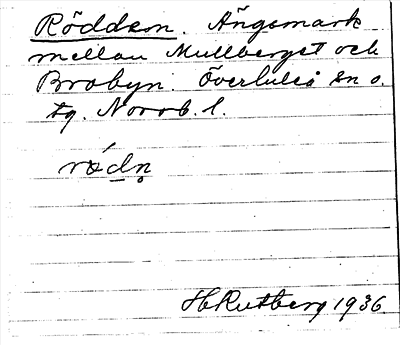 Röddsn. Ängsmark
mellan Mullberget och
Brobyn. Överluleå sn o.
tg. Norrb. l.
rǿdn̥
H Rutberg 1936.